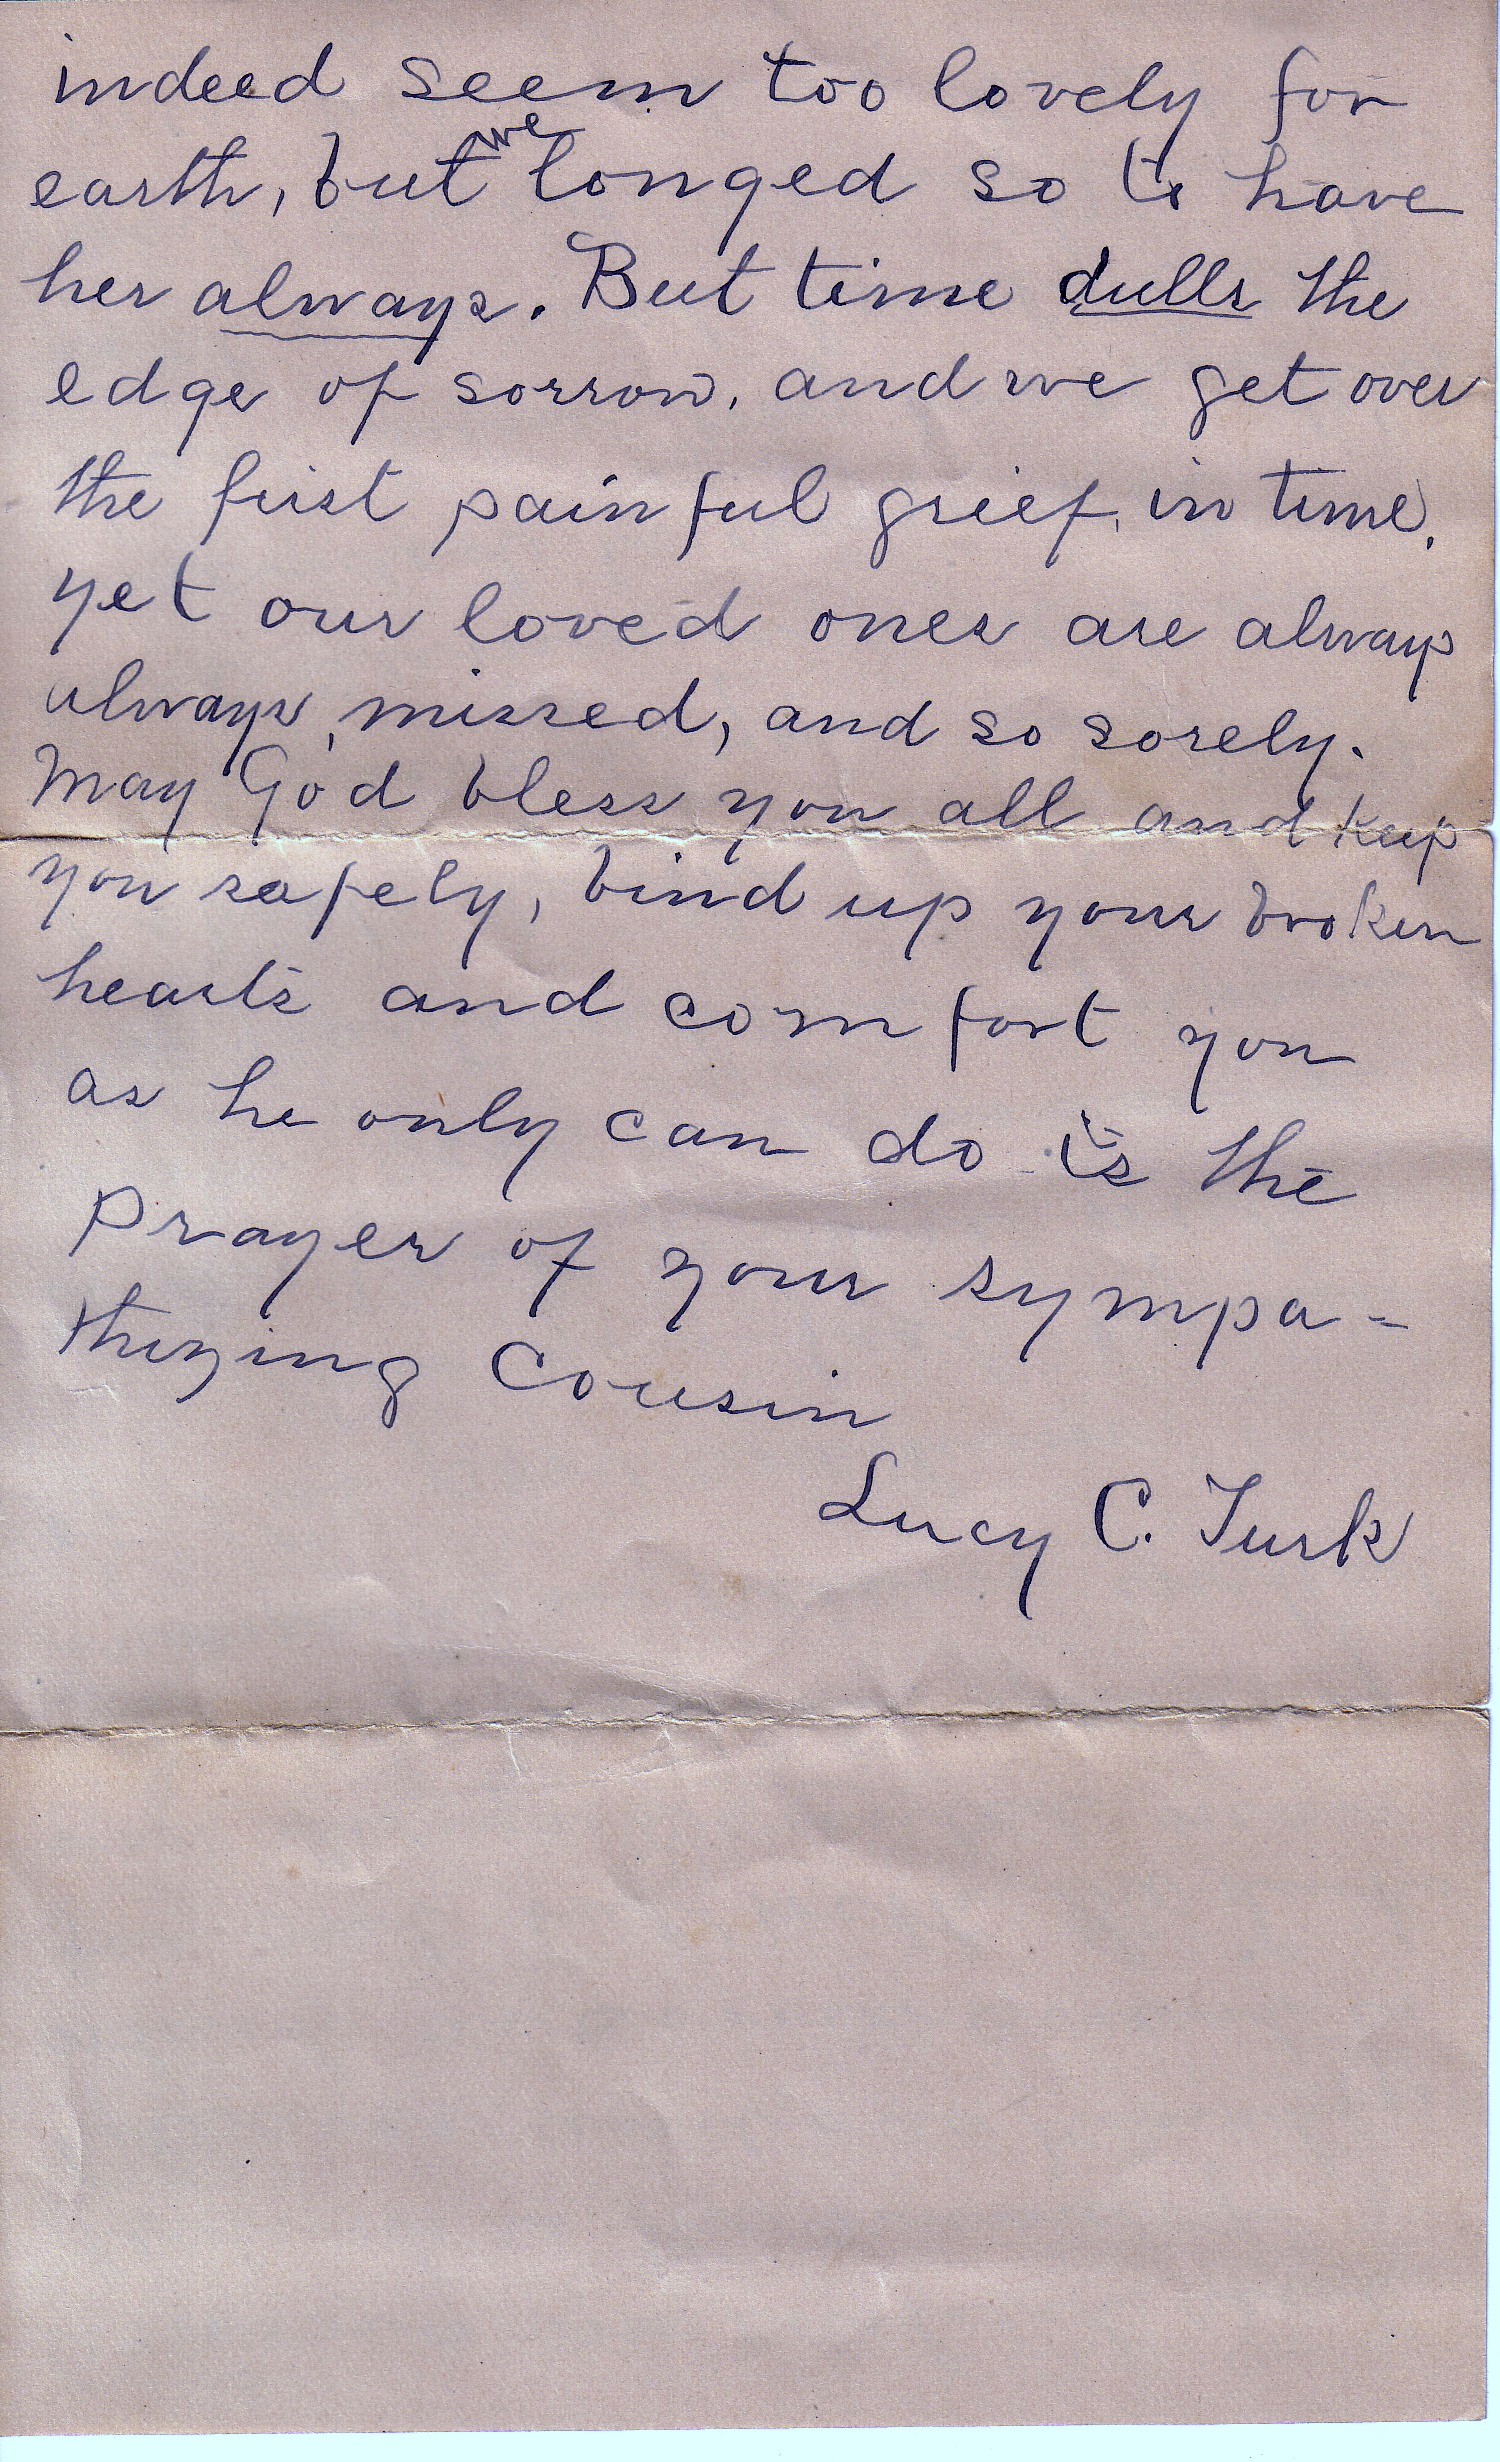 indeed seem too lovely for
earth, but we longed so to have
her always. But time dulls the
edge of sorrow, and we get over
the first painful grief, in time,
yet our loved ones are always
always, missed, and so sorely.
May God bless you all and keep
you safely, bind up your broken
hearts and comfort you
as he only can do is the
prayer of your sympa-
thizing Cousin
Lucy C. Turk